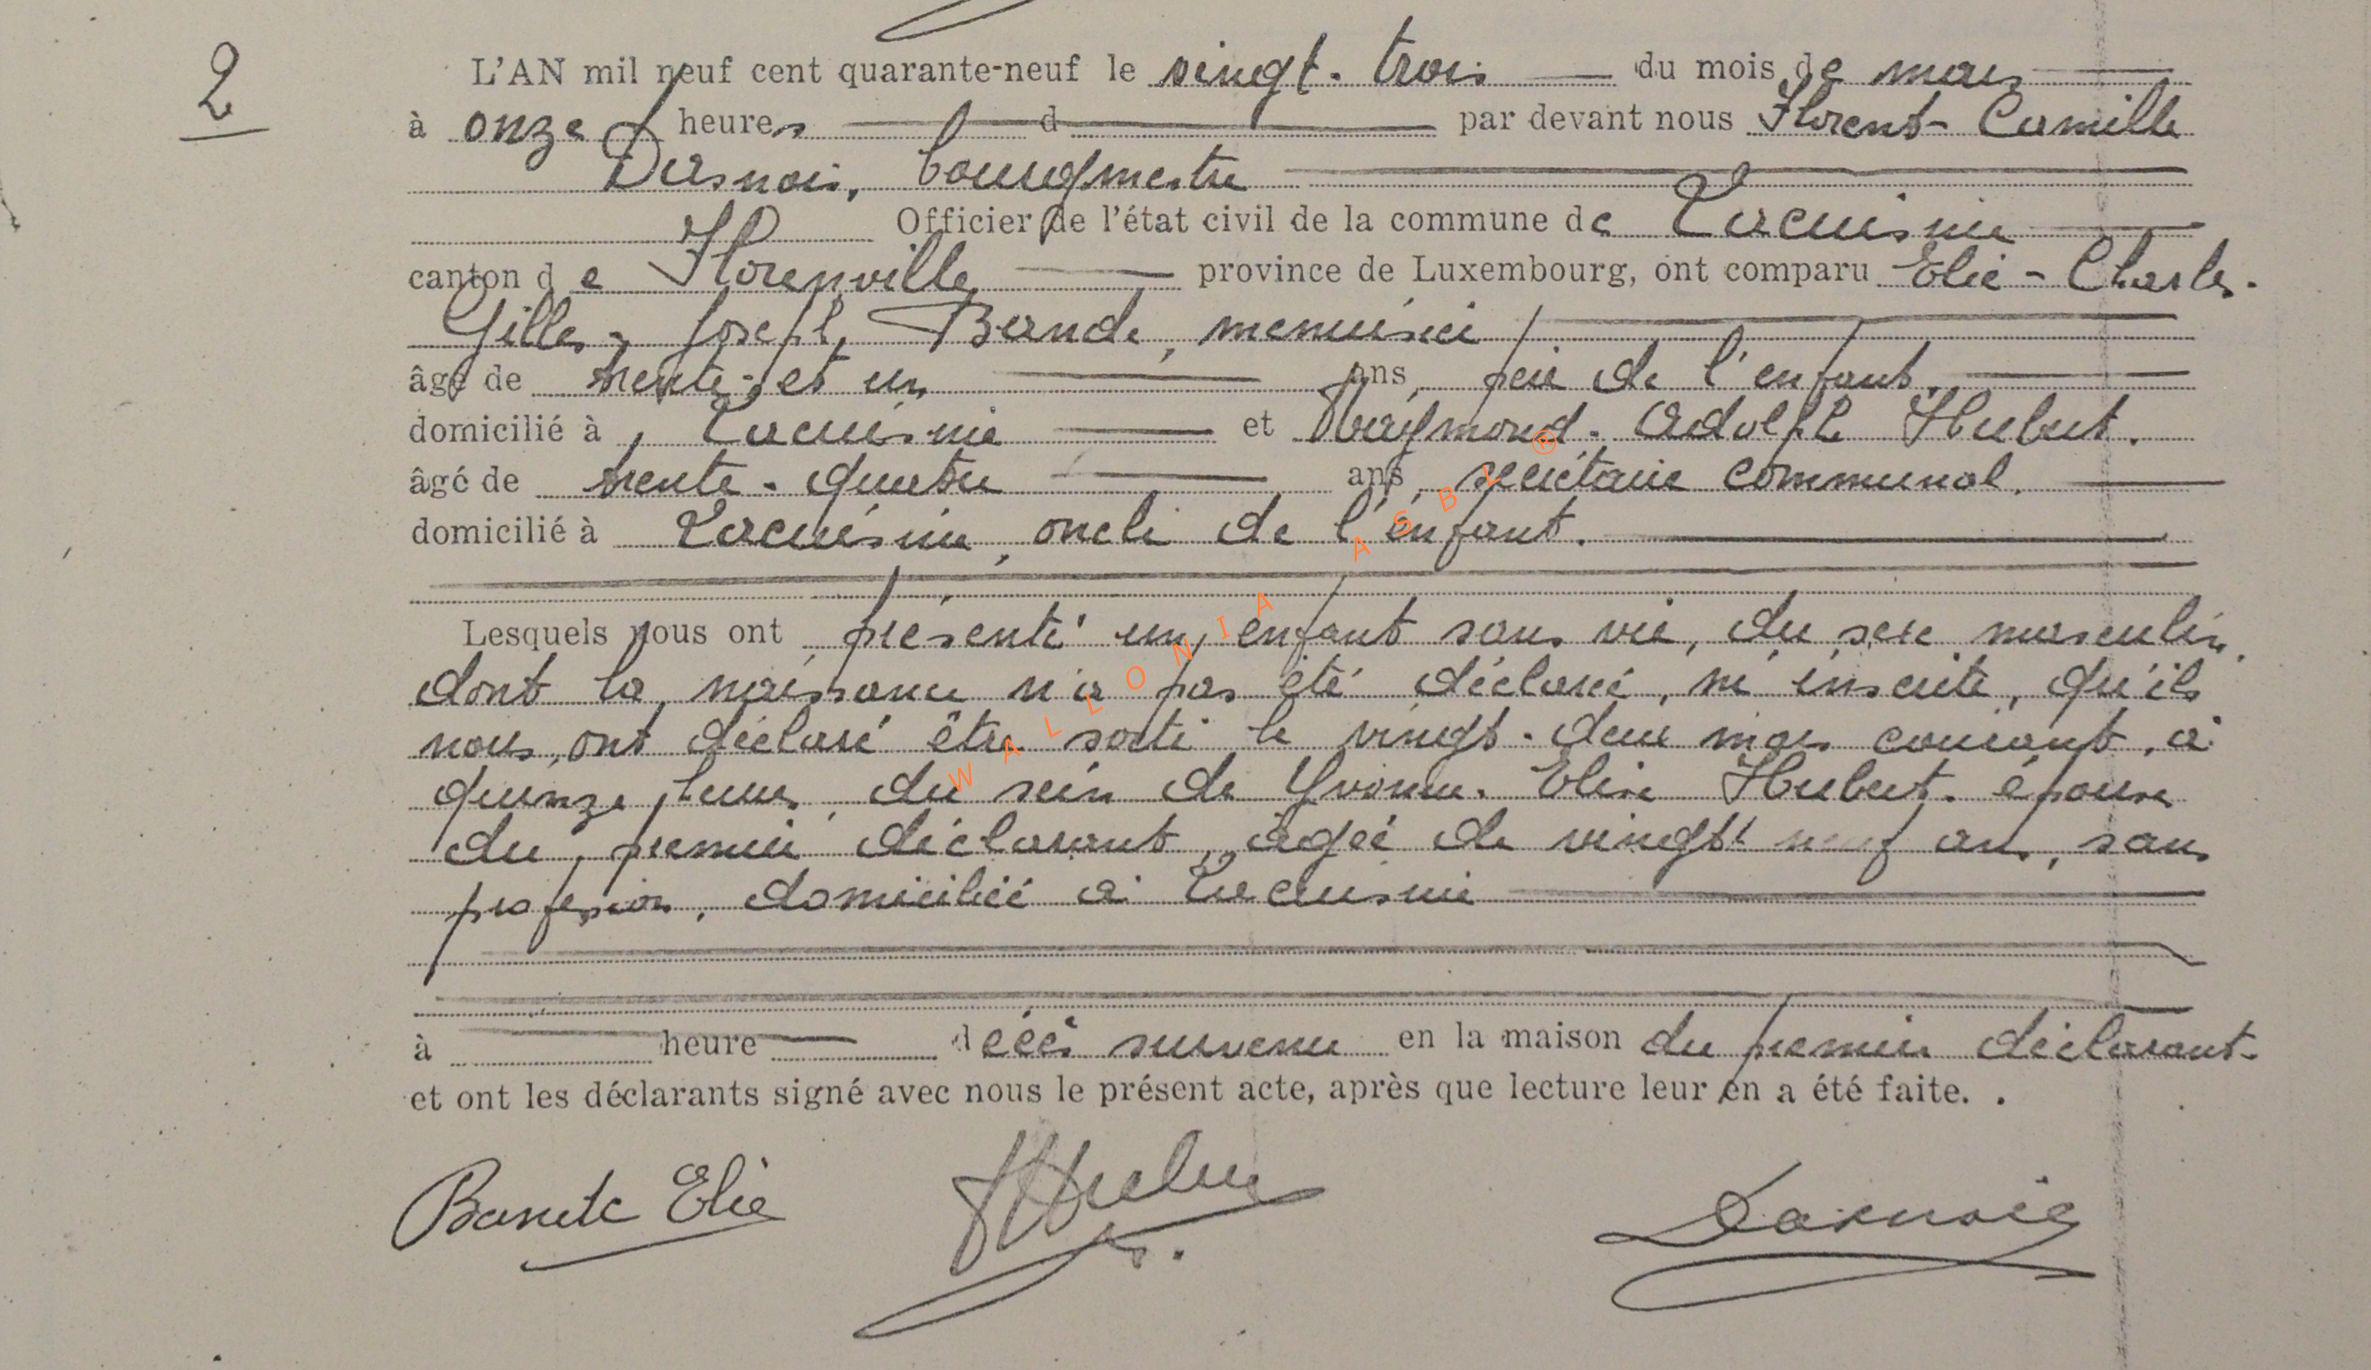 2
L'AN mil neuf cent quarante-neuf le vingt-trois du mois de mars
à onze heures d par devant nous Florent-Camille
Dasnois, bourgmestre
Officier de l'état civil de la commune de Lacuisine
canton de Florenville province de Luxembourg, ont comparu Elie-Charles-
Gilles-Joseph Bande, menuisier
âgé de trente et un ans, père de l'enfant,
domicilié à Lacuisine et Raymond-Adolphe Hubert.
âgé de trente-quatre ans, secrétaire communal.
domicilié à Lacuisine, oncle de l'enfant.
Lesquels nous ont présenté un enfant sans vie, du sexe masculin,
dont la naissance n'a pas été déclarée, ni inscrite, qu'ils
nous ont déclaré être sorti le vingt-deux mars courant, à
quinze heures du sein de Yvonne-Elise Hubert. épouse
du premier déclarant, âgée de vingt neuf ans, sans
profession, domiciliée à Lacuisine
à heure décès survenu en la maison du premier déclarant.
et ont les déclarants signé avec nous le présent acte, après que lecture leur en a été faite.
Bande Elie RHubert Dasnois
WALLONIA ASBL ®